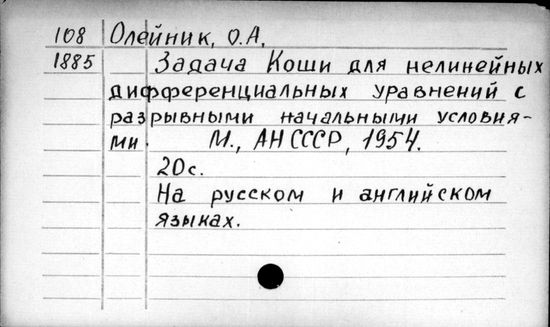 108 Олейник, О.А.
1885 Задача Коши для нелинейных
дифференциальных уравнений с
разрывными начальными условия-
ми. М., АН СССР, 1954.
20с.
На русском и английском
языках.